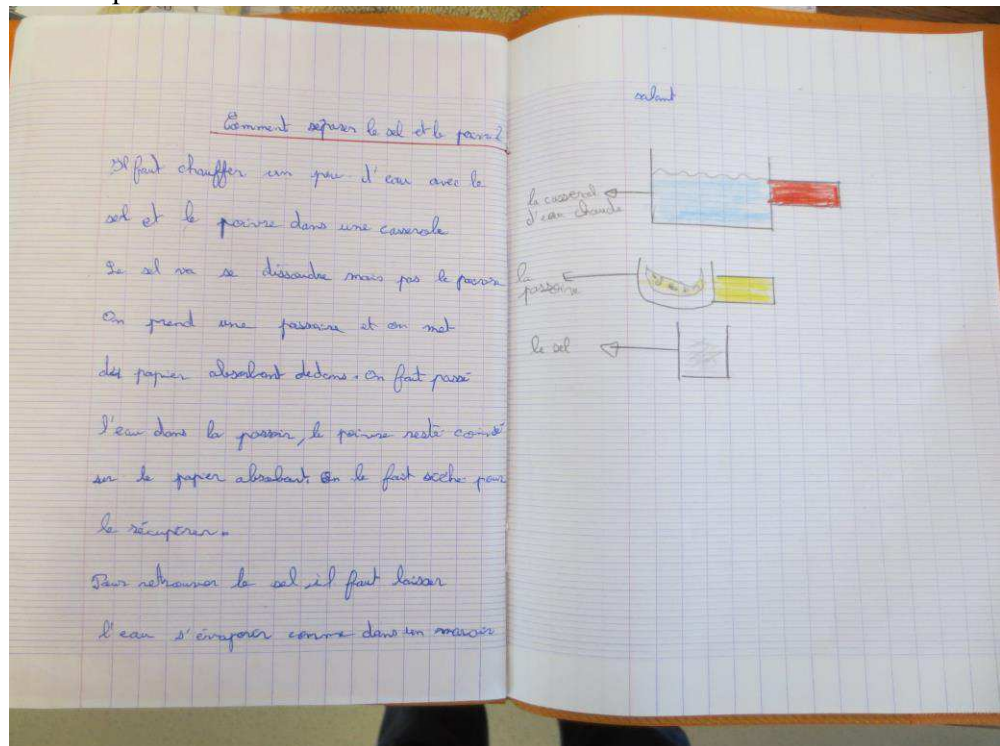 Comment séparer le sel et le poivre?
Il faut chauffer un peu d'eau avec le
sel et le poivre dans une casserole
Le sel va se dissoudre mais pas le poivre
On prend une passoire et on met
du papier absorbant dedans. On fait passé
l'eau dans la passoir, le poivre reste coincé
sur le papier absorbant. On le fait sèche pour
le récuperer.
Pour retrouver le sel il faut laisser
l'eau s'évaporer comme dans un marais
salant
la casserol
d'eau chaude
la
passoire
le sel